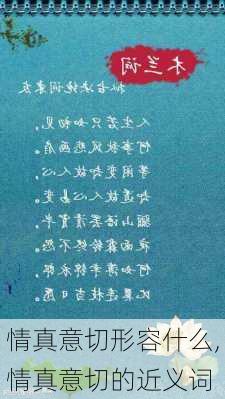 木兰词
拟古决绝词柬友
人生若只如初见,
何事秋风悲画扇。
等闲变却故人心,
却道故人心易变。
骊山语罢清宵半,
夜雨霖铃终不怨。
何如薄幸锦衣郎,
比翼连枝当日愿。
情真意切形容什么,
情真意切的近义词